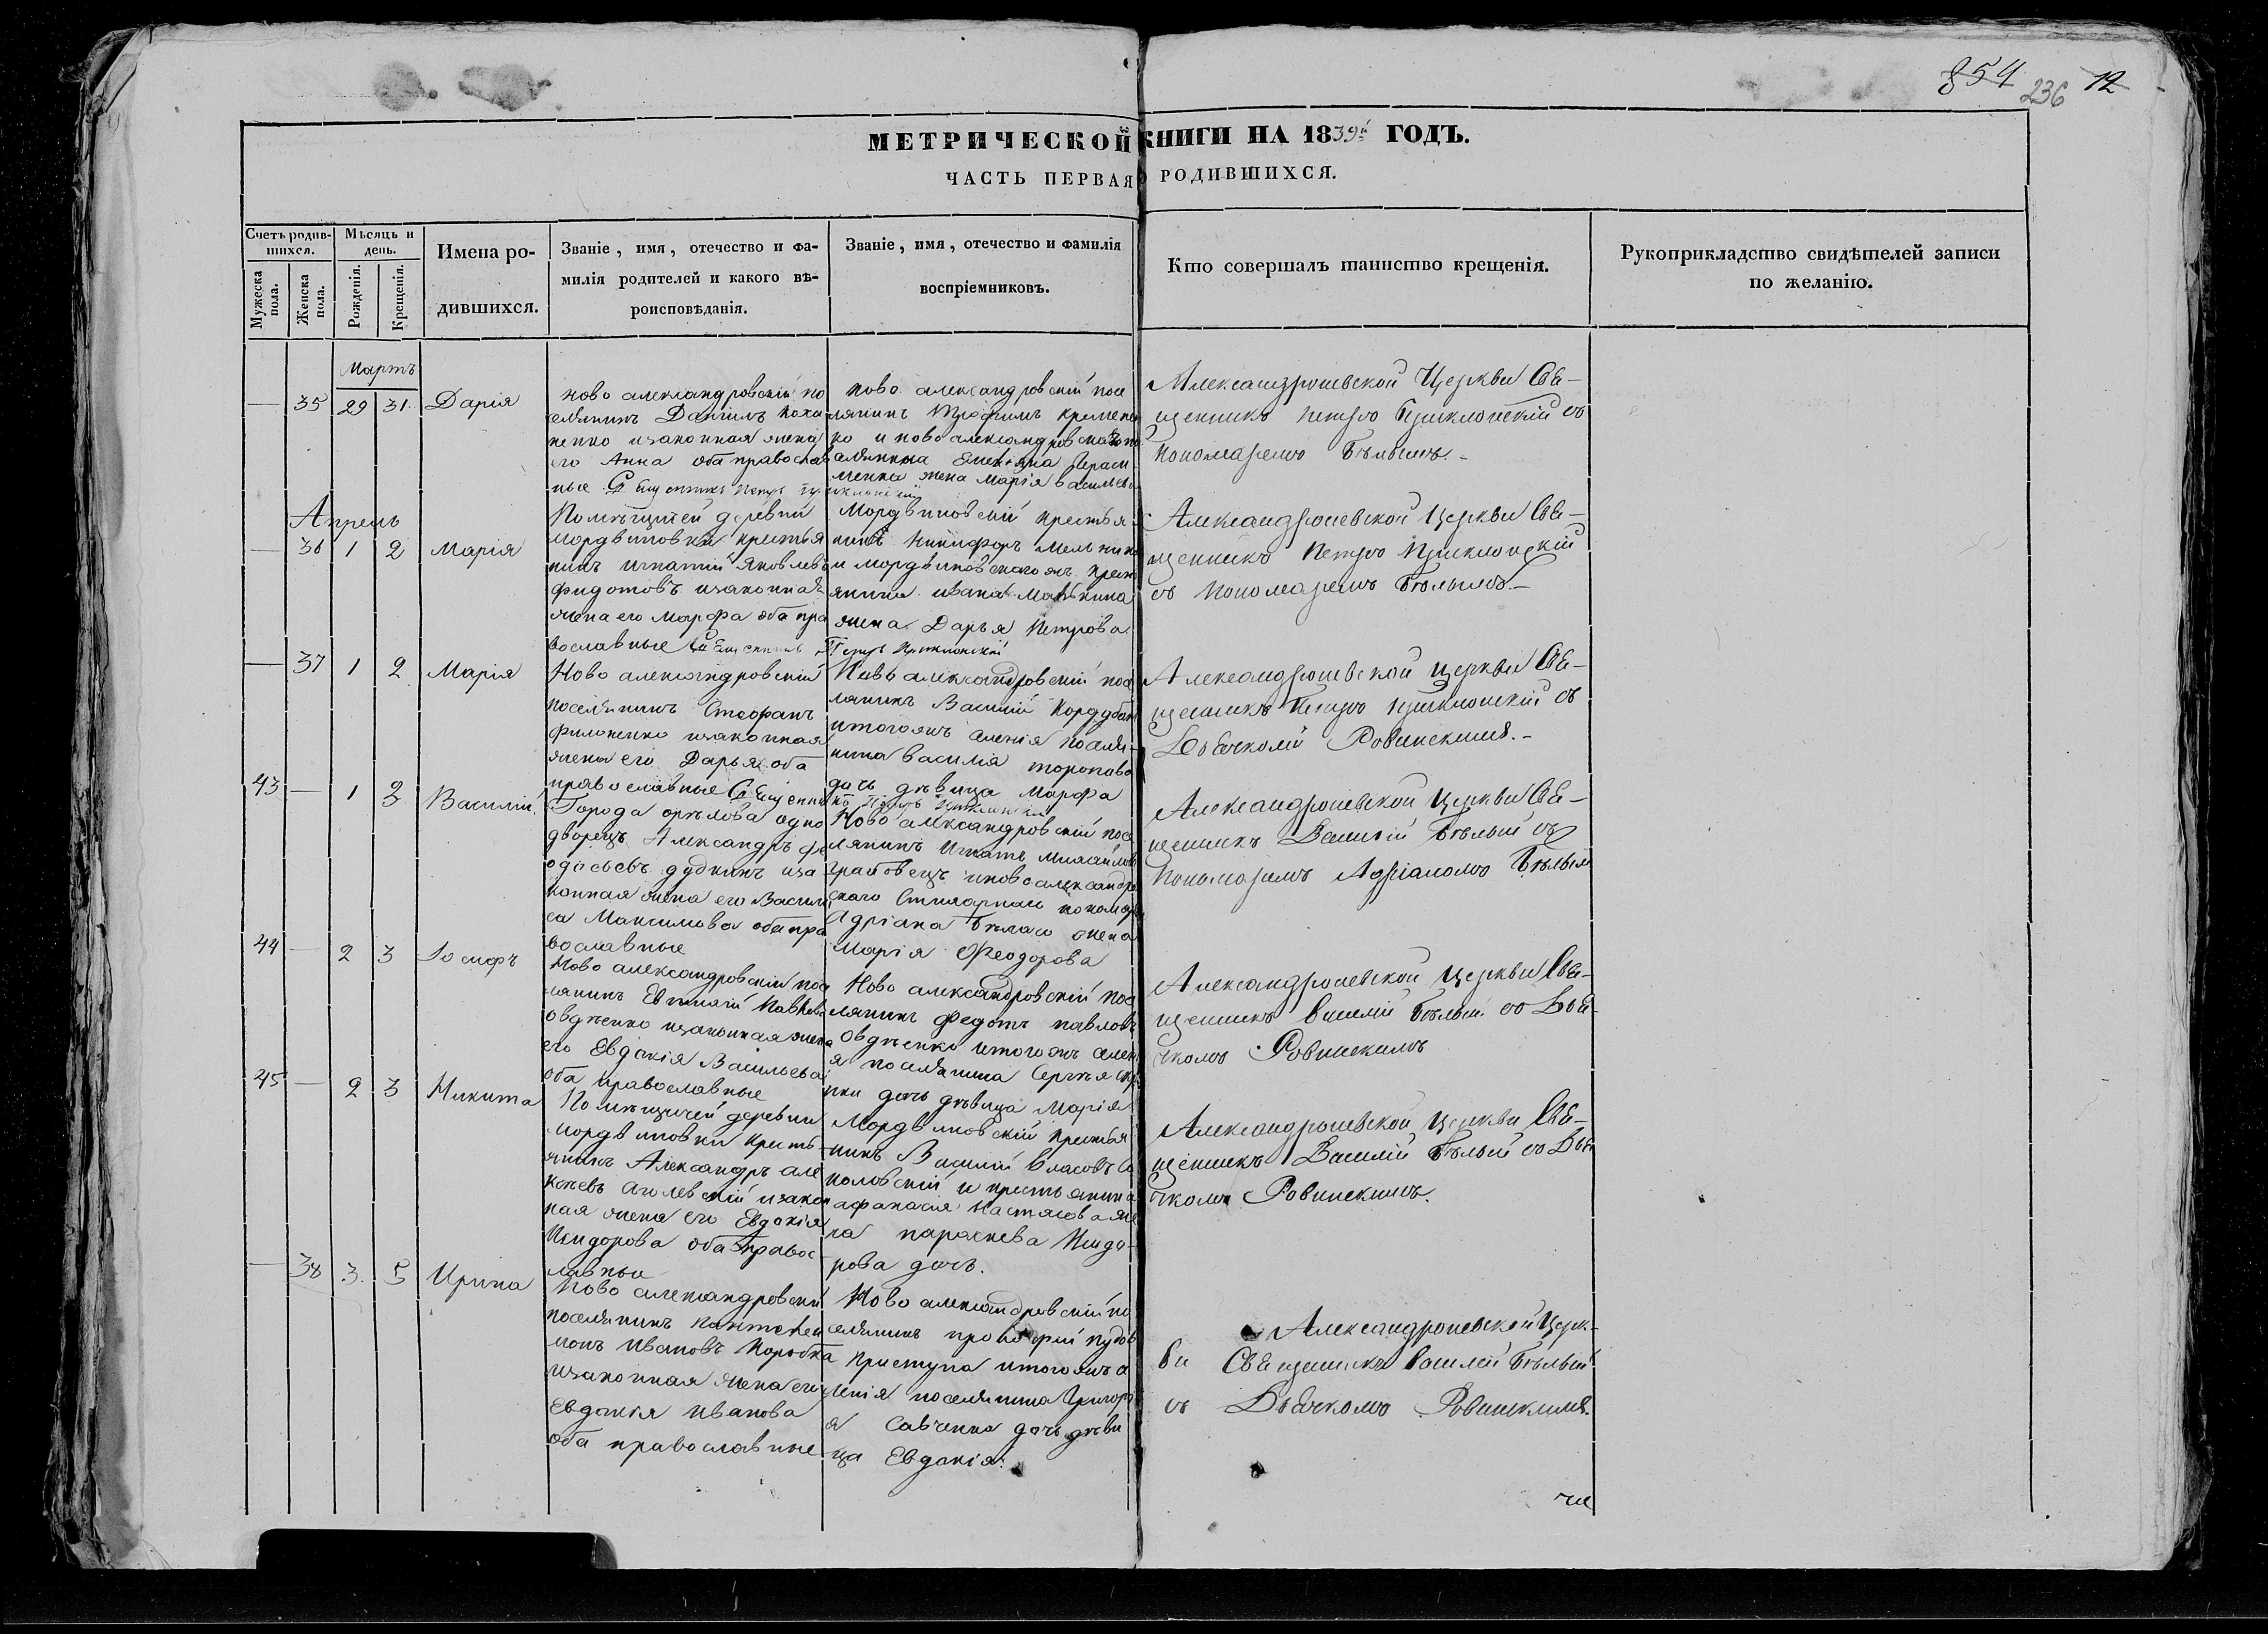 854 236 12
МЕТРИЧЕСКОЙ КНИГИ НА 1839й ГОДЪ.
ЧАСТЬ ПЕРВАЯ О РОДИВШИХСЯ.
Счетъ родив-
шихся.
Мужеска пола.
Женска пола.
Мѣсяцъ и
день.
Рожденія.
Крещенія.
Имена ро-
дившихся.
Званіе, имя, отечество и фа-
милія родителей и какого вѣ-
роисповѣданія.
Званіе, имя, отечество и фамилія
воспріемниковъ.
Кто совершалъ таинство крещенія.
Рукоприкладство свидѣтелей записи
по желанію.
Мартъ
— 35 29 31. Дарія
Ново александровскій по
селянинъ Даніилъ
ненко изаконная жена
его Анна оба православ
ные Священникъ Петръ
Ново александровскій посе
лянинъ Трофимъ Кремене
ко и ново александровскаго по
селянина Емеліяна Гераси
менка жена Марія Васильева
Александроневской Церкви Свя-
щенникъ Петръ Приклонскій съ
Пономаремъ Бѣлымъ.-
Апрель
— 36 1 2 Марія
Помѣщичей деревни
Мордвиновки крестья
нинъ Игнатій Яковлевъ
Федотовъ изаконная
жена его Марфа оба пра
вославные Священникъ Петръ Приклонскій
Мордвиновскій крестья
нинъ Никифоръ Мельник
и мордвиновскаго жъ крест
янина Ивана Малькина
жена Дарья Петрова
Александроневской Церкви Свя-
щенникъ Петръ Приклонскій
съ Пономаремъ Бѣлымъ.-
— 37 1 2 Марія
Ново александровскій
поселянинъ Стефанъ
Филоненко изаконная
жена его Дарья оба
православные Священникъ Петръ Приклонскій
Ново александровскій посе
лянинъ Василій
итогожъ селенія поселя-
нина Василія
дочь дѣвица Марфа
Александроневской Церкви Свя-
щенникъ Петръ Приклонскій съ
Дьячкомъ Ровинскимъ.-
43 — 1 2 Василій.
Города орѣлова одно
дворецъ Александръ Фе
одосьевъ Дудкинъ иза
конная жена его Васили
са Максимова оба пра
вославные
Ново александровскій посе
лянинъ Игнатъ Михайлов
Грабовецъ иново александро
скаго пономаря
Адріана Бѣлаго жена
Марія Феодорова
Александроневской Церкви Свя-
щенникъ Василій Бѣлый съ
Пономаремъ Адріаномъ Бѣлым
44 — 2 3 Іосифъ
Ново александровскій посе
лянинъ Евтихій Павлов
Овдѣенко изаконная жена
его Евдокія Васильева
оба православные
Ново александровскій посе
лянинъ Федотъ Павловъ
Овдѣенко итогожъ селен
я поселянина Сергѣя
дочь дѣвица Марія
Александроневской Церкви Свя-
щенникъ Василій Бѣлый со Дья-
чкомъ Ровинскимъ
45 — 2 3 Никита
Помѣщичей деревни
Мордвиновки крестъ
янинъ Александръ Але
ксѣевъ изакон
ная жена его Евдокія
Исидорова оба правос
лавные
Мордвиновскій крестья
нинъ Василій Власовъ Со
коловскій и крестьянина
Афанасія же
на Параскева Исидо-
рова дочь.
Александроневской Церкви Свя-
щенникъ Василій Бѣлый со Дья
чкомъ Ровинскимъ.
— 38 3. 5 Ирина
Ново александровскій
поселянинъ Пантелей
монъ Ивановъ Коробка
изаконная жена его
Евдокія Иванова
оба православные
Ново александровскій по
селянинъ Прокофій
Приступа итогожъ се
ленія поселянина Григорі
я Савченка дочь дѣви
ца Евдокія.
Александроневской Церк-
ви Священникъ Василій Бѣлый
съ Дьячкомъ Ровинскимъ.